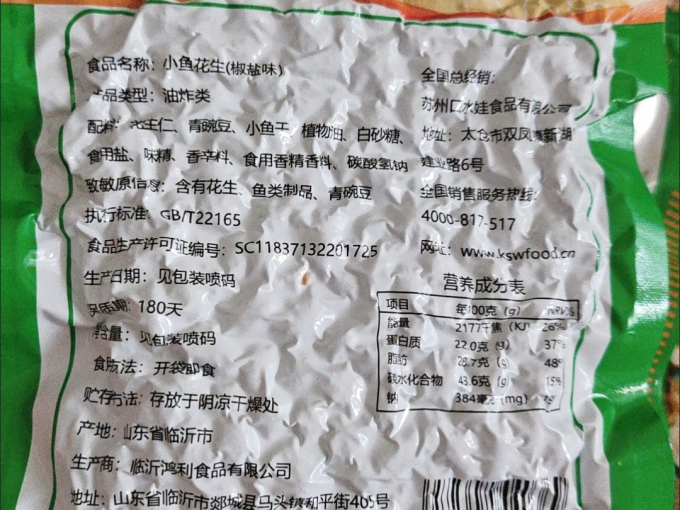 食品名称：小鱼花生(椒盐味)
产品类型：油炸类
配料：花生仁、青豌豆、小鱼干、植物油、白砂糖、
食用盐、味精、香辛料、食用香精香料、碳酸氢钠
致敏原信息：含有花生、鱼类制品、青豌豆
执行标准：GB/T22165
食品生产许可证编号：SC11837132201725
生产日期：见包装喷码
保质期：180天
净含量：见包装喷码
食用方法：开袋即食
贮存方法：存放于阴凉干燥处
产地：山东省临沂市
生产商：临沂鸿利食品有限公司
地址：山东省临沂市郯城县马头镇和平街405号
全国总经销：
苏州口水娃食品有限公司
地址：太仓市双凤镇新湖
建业路6号
全国销售服务热线：
4000-817-517
网址：www.kswfood.cn
营养成分表
项目 每100克（g） NRV%
能量 2177千焦（KJ） 26%
蛋白质 22.0克（g） 37%
脂肪 28.7克（g） 48%
碳水化合物 43.6克（g） 15%
钠 384毫克（mg）